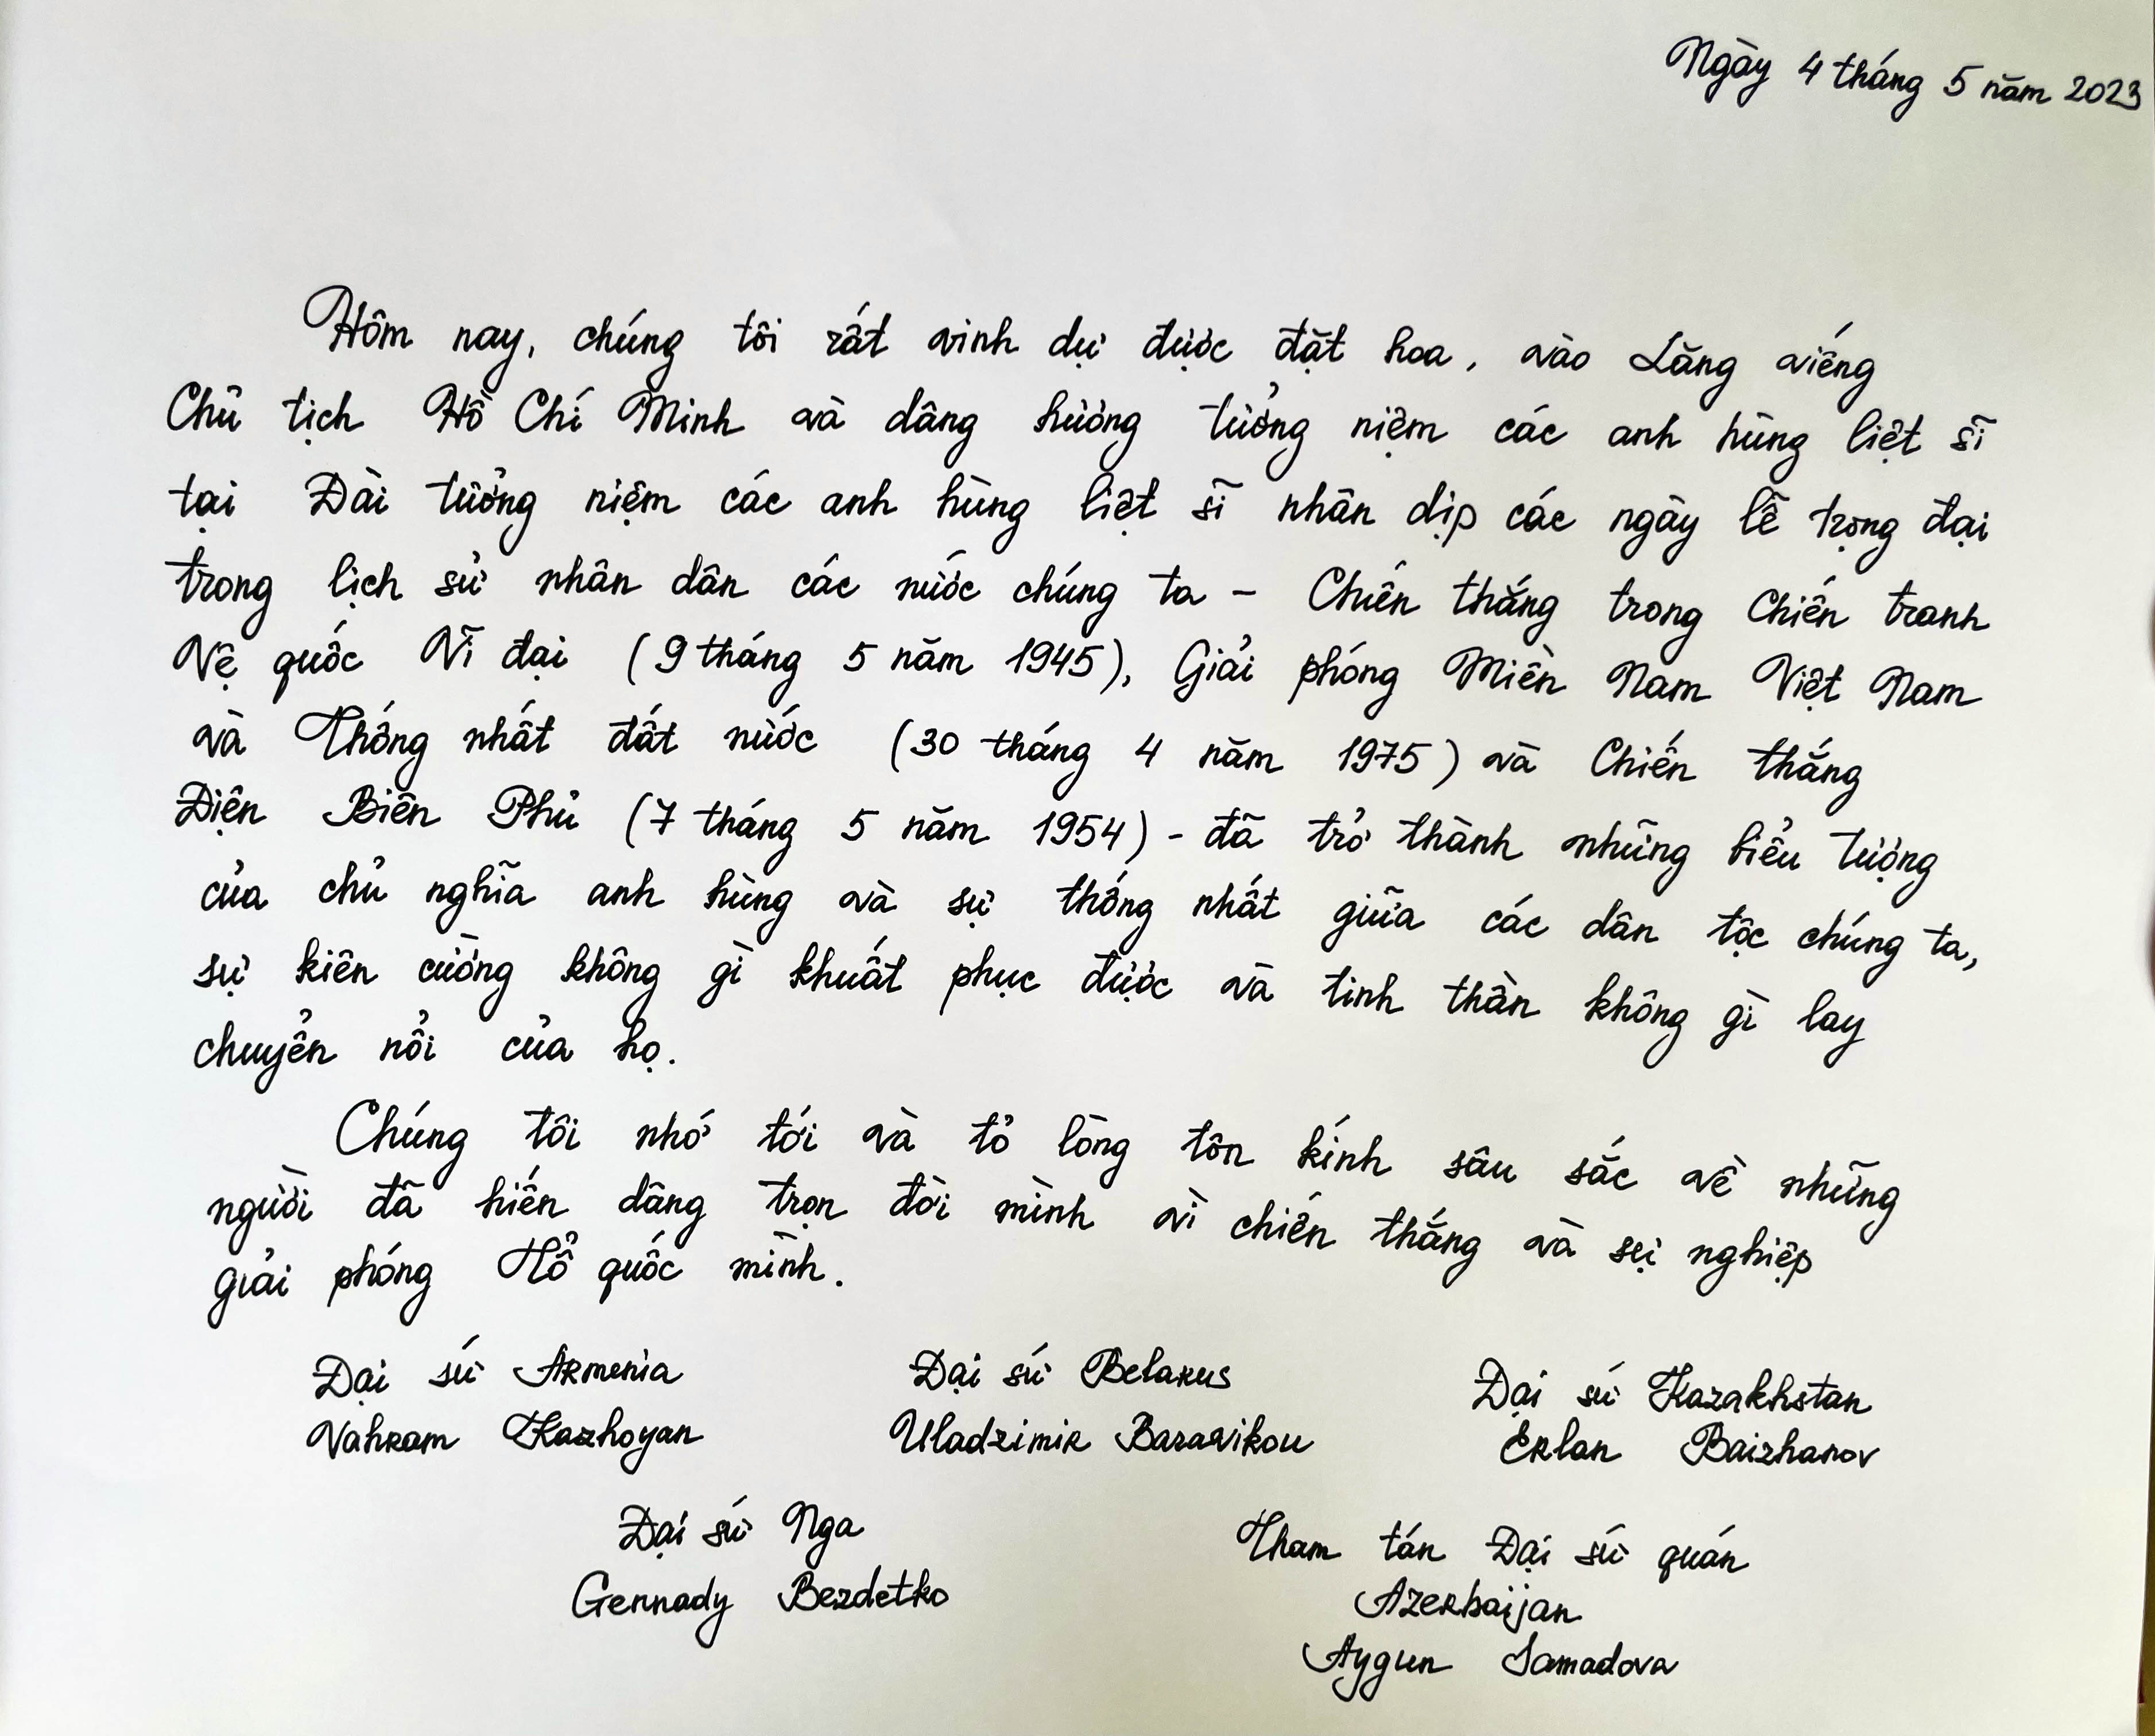 Ngày 4 tháng 5 năm 2023
Hôm nay, chúng tôi rất vinh dự được đặt hoa, vào Lăng viếng
Chủ tịch Hồ Chí Minh và dâng hương tưởng niệm các anh hùng liệt sĩ
tại Đài tưởng niệm các anh hùng liệt sĩ nhân dịp các ngày lễ trọng đại
trong lịch sử nhân dân các nước chúng ta - Chiến thắng trong Chiến tranh
Vệ quốc Vĩ đại (9 tháng 5 năm 1945), Giải phóng Miền Nam Việt Nam
và Thống nhất đất nước (30 tháng 4 năm 1975) và Chiến thắng
Điện Biên Phủ (7 tháng 5 năm 1954) - đã trở thành những biểu tượng
của chủ nghĩa anh hùng và sự thống nhất giữa các dân tộc chúng ta,
sự kiên cường không gì khuất phục được và tinh thần không gì lay
chuyển nổi của họ.
Chúng tôi nhớ tới và tỏ lòng tôn kính sâu sắc về những
người đã hiến dâng trọn đời mình vì chiến thắng và sự nghiệp
giải phóng Tổ quốc mình.
Đại sứ Armenia Đại sứ Belarus Đại sứ Kazakhstan
Vahram Kazhoyan Uladzimir Baravikou Erlan Baizhanov
Đại sứ Nga Tham tán Đại sứ quán
Gennady Bezdetko Azerbaijan
Aygun Samadova